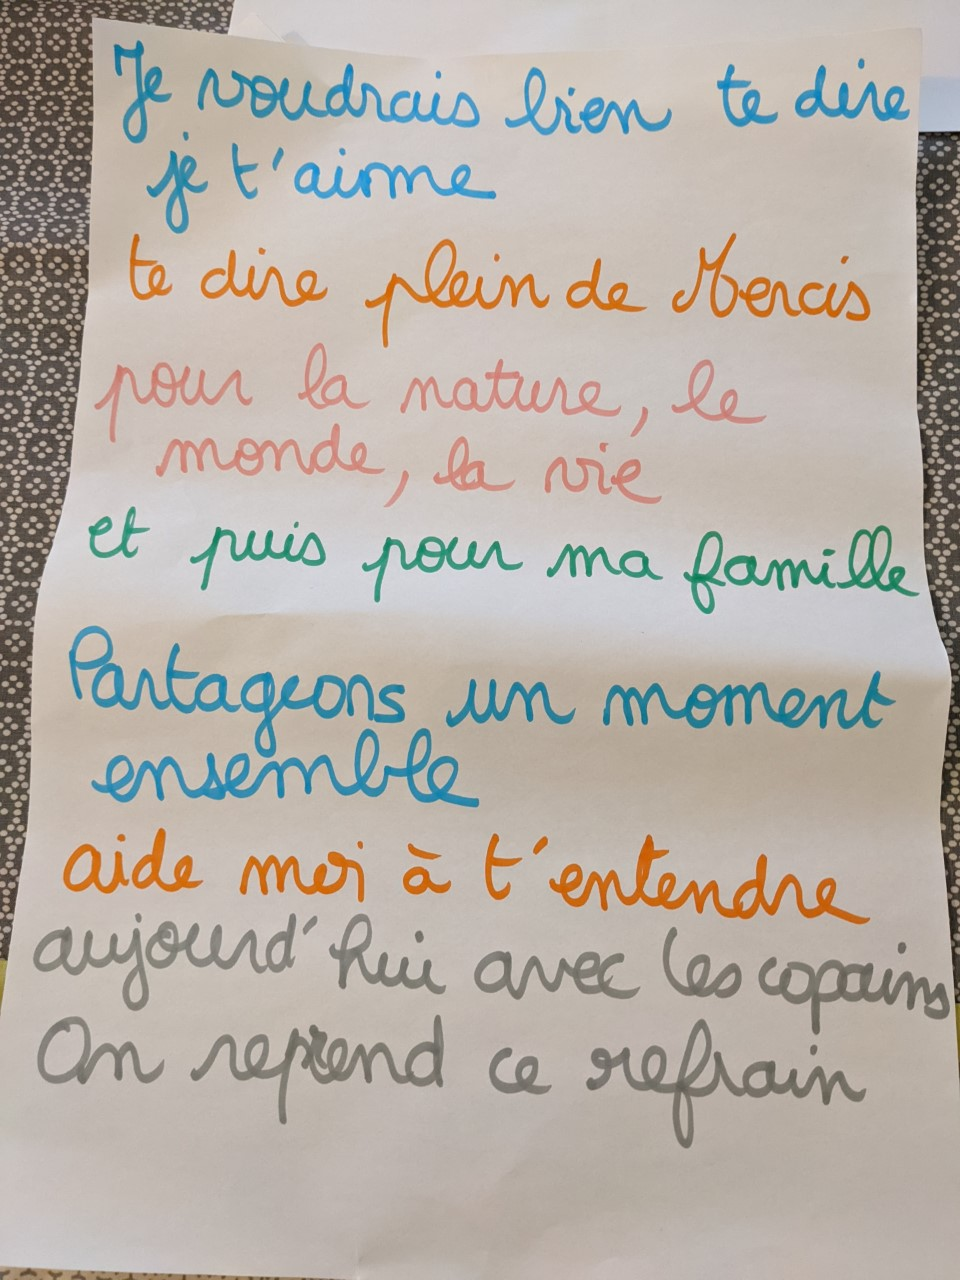 Je voudrais bien te dire
je t'aime
te dire plein de Mercis
pour la nature, le
monde, la vie
et puis pour ma famille
Partageons un moment
ensemble
aide moi à t'entendre
aujourd'hui avec les copains
On reprend ce refrain